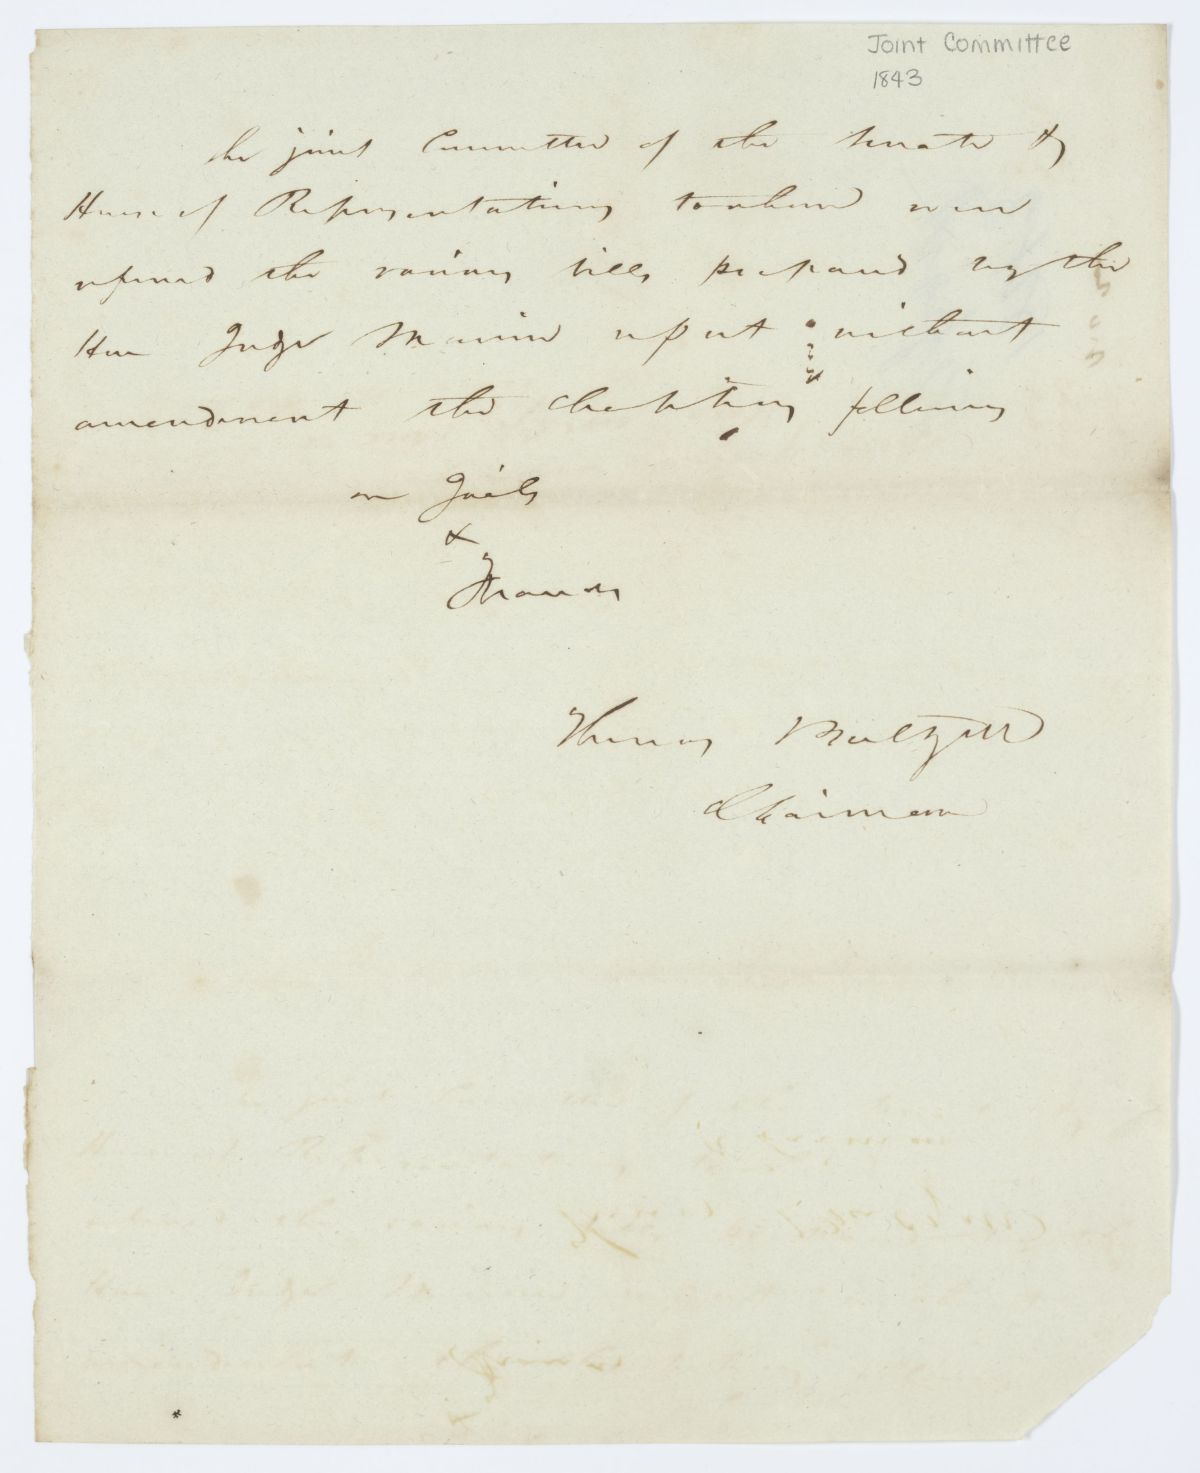 Joint Committee
1843
The joint Committee of the Senate &
House of Representatives to whom were
referred the various bills prepared by the
Hon Judge Marvin report without
amendment the following
on Jails
&
Frauds
Thomas Baltzell
Chairman